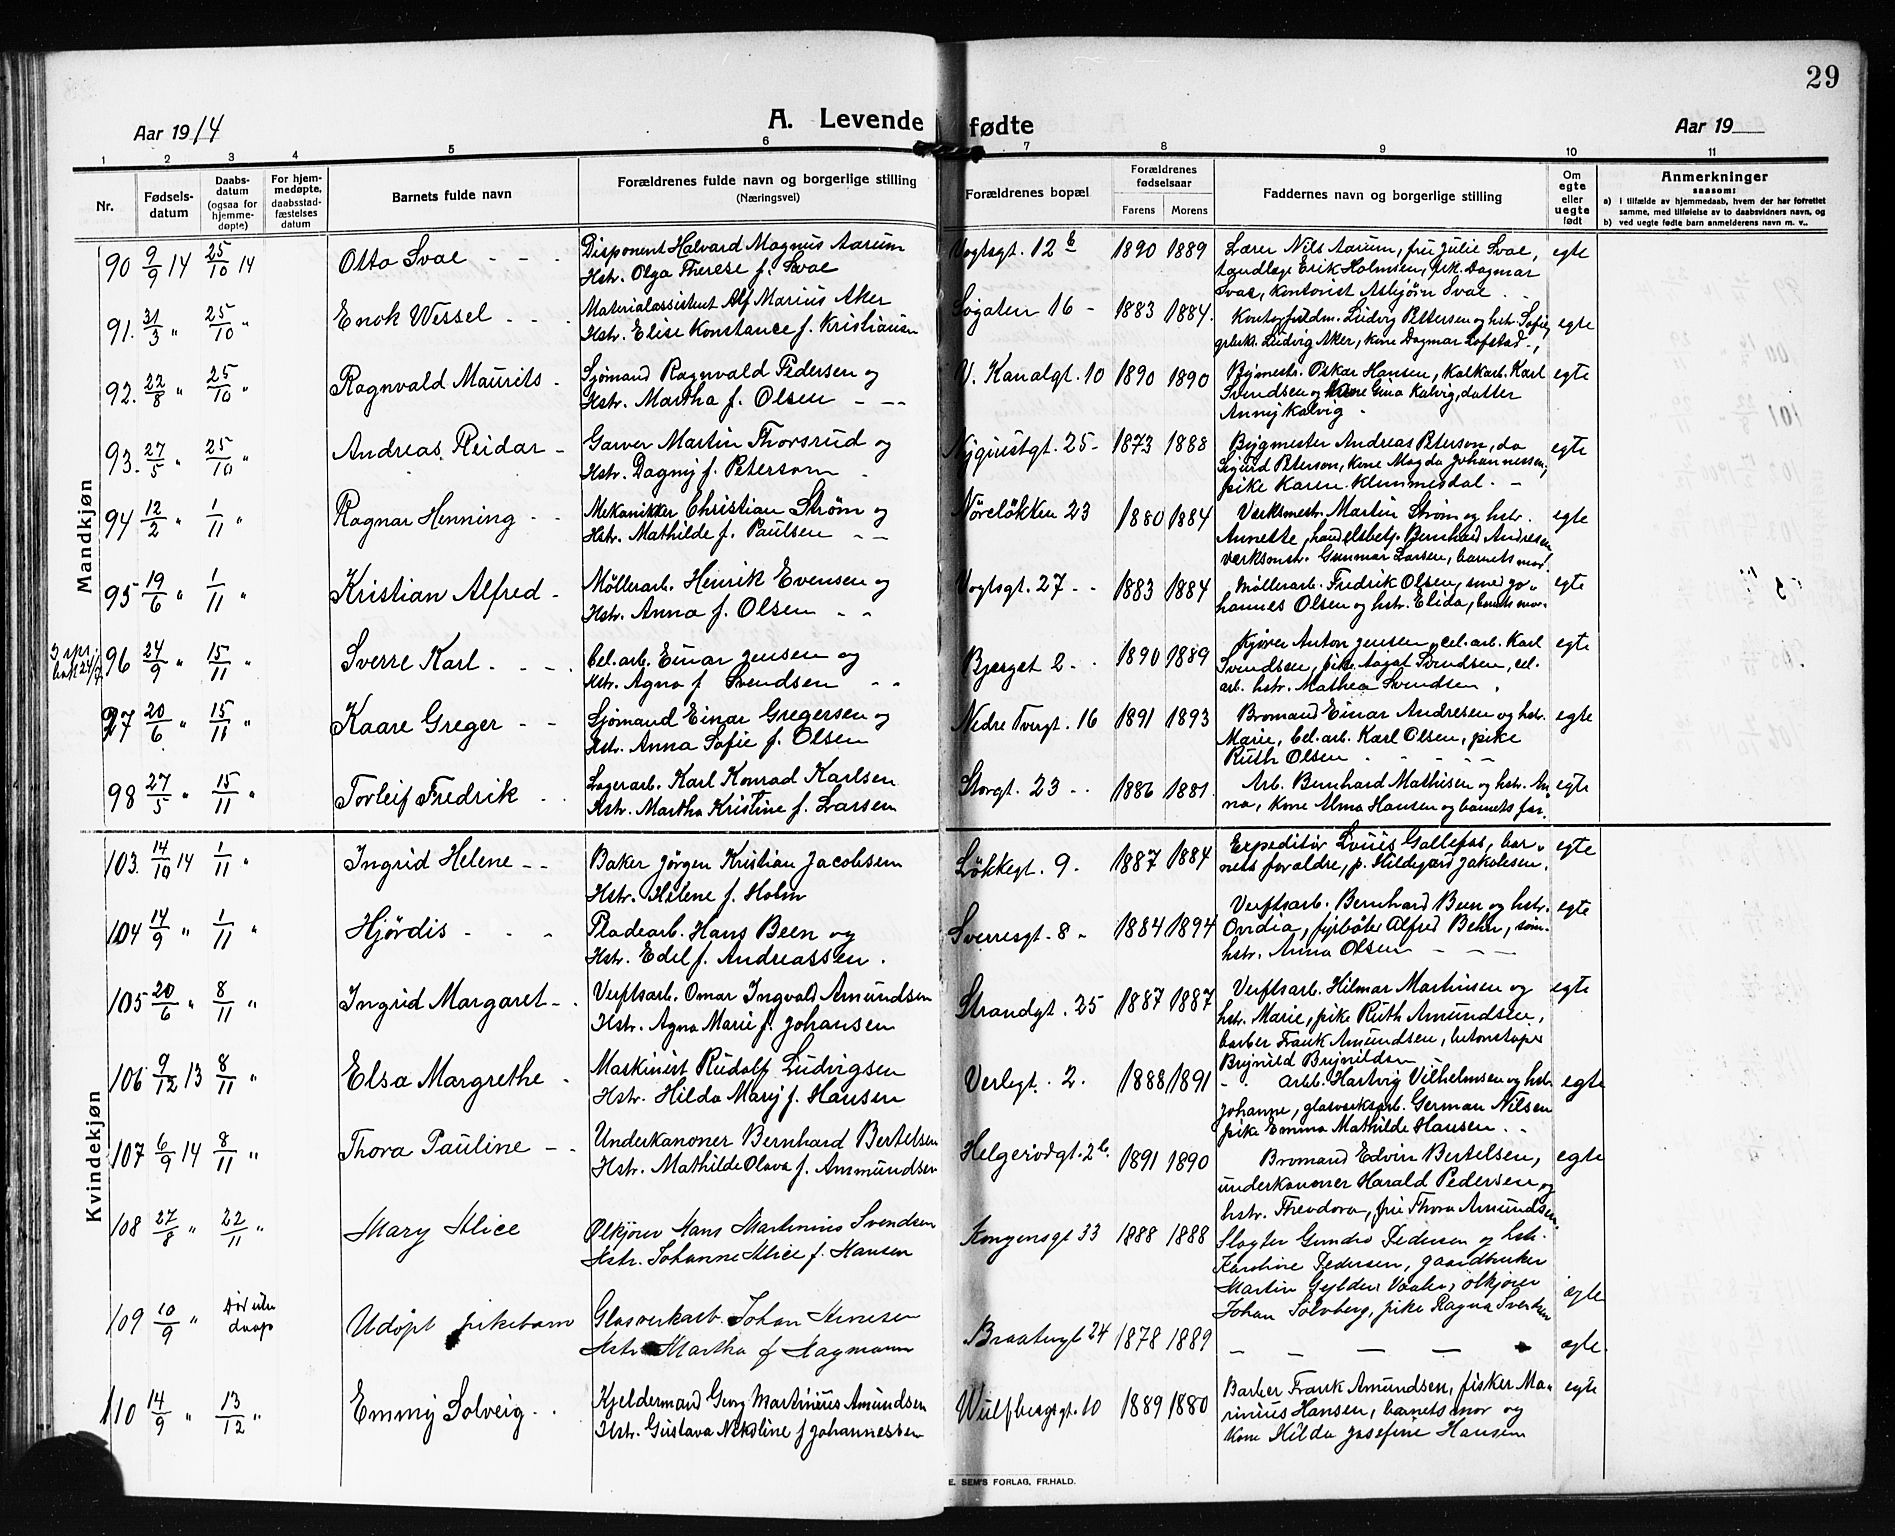 29
Aar 1914
A. Levende fødte
Aar 19
1 2 3 4 5 6 7 8 9 10 11
Nr.
Fødsels-
datum
Daabs-
datum
(ogsaa for
hjemme-
døpte)
For hjem-
medøpte,
daabsstad-
fæstelses
datum
Barnets fulde navn
Forældrenes fulde navn og borgerlige stilling
(Næringsvei)
Forældrenes bopæl
Forældrenes
fødselsaar
Farens Morens
Faddernes navn og borgerlige stilling
Om
egte
eller
uegte
født
Anmerkninger
saasom:
a) i tilfælde av hjemmedaab, hvem der har forrettet
samme, med tilføielse av to daabsvidners navn, og
b) ved uegte fødte barn anmelderens navn m. v..
Mandkjøn
90 9/9 14 25/10 14 Otto Svae
Disponent Halvard Magnus Aarum
Hstr. Olga Therese f. Svae
Vogtsgt. 12 b 1890 1889
Lærer Nils Aarum, fru Julie Svae,
tandlæge Erik Holmsen, pik. Dagmar
Svae, kontorist Asbjørn Svae
egte
91. 31/3 " 25/10 " Enok Wessel
Materialassistent Alf Marius Aker
Hstr. Elise Konstance f. Kristiansen
Søgaten 16 - 1883 1884.
Kontorfuldm. Ludvig Pettersen og hstr. Sofie,
Ludvig Aker, kone Dagmar Lofstad.,
egte
92. 22/8 " 25/10 " Ragnvald Maurits
Sjømand Ragnvald Pedersen og
Hstr. Martha f. Olsen
V. Kanalgt. 10 1890 1890
Bygmestr. Oskar Hansen, kalkarb. Karl
Svendsen og kone Gina Kalvig, datter
Anny Kalvig
egte
93. 27/5 " 25/10 " Andreas Reidar
Garver Martin Thorsrud og
Hstr. Dagny f. Peterson
Nygaustgt. 25 1873 1888
Bygmester Andreas Peterson, do
Sigurd Peterson, kone Magda Johannessen,
pike Karen Klemmesdal.
egte
94 12/2 " 1/11 " Ragnar Henning
Mekanikker Christian Strøm og
Hstr. Mathilde f. Paulsen
Nøreløkken 23 1880 1884
Værksmestr. Martin Strøm og hstr.
Annette, handelsbetj. Bernhard Andresen
værksmstr. Gunnar Larsen, barnets mor.
egte
95 19/6 " 1/11 " Kristian Alfred
Møllerarb. Henrik Evensen og
Hstr. Anna f. Olsen
Vogtsgt. 27 1883 1884
Møllerarb. Fredrik Olsen, smed Jo-
hannes Olsen og hstr. Elida, barnets mor.
egte
96 24/9 " 15/11 " Sverre Karl
Cel.arb. Einar Jensen og
Hstr. Agna f. Svendsen
Bjerget 2 1890 1889
Kjører Anton Jensen, cel. arb. Karl
Svendsen, pike Aagot Svendsen, cel.
arb. hstr. Mathea Svendsen.
egte
97 20/6 " 15/11 " Kaare Greger
Sjømand Einar Gregersen og
Hstr. Anna Sofie f. Olsen
Nedre Tvergt. 16 1891 1893
Bromand Einar Andresen og hstr.
Marie, cel.arb. Karl Olsen, pike
Ruth Olsen
egte
98 27/5 " 15/11 " Torleif Fredrik
Lagerarb. Karl Konrad Karlsen
Hstr. Martha Kristine f. Larsen
Storgt. 23 1886 1881
Arb. Bernhard Mathisen og hstr. An-
na, kone Alma Hansen og barnets far.
egte
Kvindekjøn
103. 14/10 14 1/11 " Ingrid Helene
Baker Jørgen Kristian Jacobsen
Hstr. Helene f. Holm
Løkkegt. 9. 1887 1884
Expeditør Louis Gallefos, bar-
nets forældre, p. Hildegard Jakobsen.
egte
104 14/9 " 1/11 " Hjørdis
Pladearb. Hans Been og
Hstr. Edel f. Andreassen.
Sverresgt. 8 1884 1894
Verftsarb. Bernhard Been og hstr.
Ovidia, fyrbøter Alfred Behn, søm.
hstr. Anna Olsen
egte
105 20/6 " 8/11 " Ingrid Margaret
Verftsarb. Omar Ingvald Amundsen
Hstr. Agna Marie f. Johansen
Strandgt. 25 1887 1887
Verftsarb. Hilmar Martinsen og
hstr. Marie, pike Ruth Amundsen,
barber Frank Amundsen, betonstøper
Brynild Brynildsen
egte
106 9/12 13 8/11 " Elsa Margrethe
Maskinist Rudolf Ludvigsen
Hstr. Hilda Mary f. Hansen
Verlegt. 2. 1888 1891
Arb. Hartvig Vilhelmsen og hstr.
Johanne, glasverksarb. German Nilsen
pike Emma Mathilde Hansen.
egte
107 6/9 14 8/11 " Thora Pauline
Underkanoner Bernhard Bertelsen
Hstr. Mathilde Olava f. Ammundsen
Helgerødgt. 2 b. 1891 1890
Bromand Edvin Bertelsen,
underkanoner Harald Pedersen og
hstr. Theodora, fru Thora Amundsen.
egte
108 27/8 " 22/11 " Mary Alice
Ølkjører Hans Martinius Svendsen
Hstr. Johanne Alice f. Hansen
Kongensgt 33 1888 1888
Slagter Gundro Pedersen og hstr.
Karoline Pedersen, gaardbruker
Martin Gylder Vaaler, ølkjører
Johan Solvberg, pike Ragna Svendsen
egte
109 10/9 " Død uden
daap
Udøpt pikebarn
Glasverkarb. Johan Arnesen
Hstr. Martha f Hagmann
Braatengt 24 1878 1889
egte.
110 14/9 " 13/12 " Emmy Solveig
Kjeldermand Georg Martinius Amundsen
Hstr. Gustava Nikoline f Johannessen
Wulfbergsgt. 10 1889 1880
Barber Frank Amundsen, fisker Ma-
rinius Hansen, barnets mor og
kone Hilda Josefine Hansen
egte
E. SEM'S FORLAG, FR.HALD.